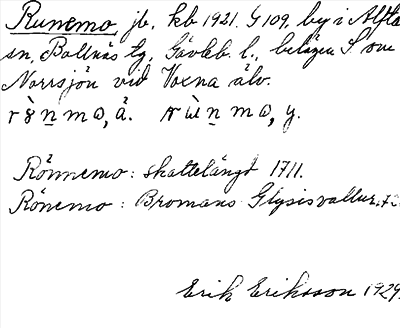 Runemo, jb. kb 1921. G 109. by i Alfta
sn, Bollnäs tg, Gävleb. l., belägen S om
Norrsjön vid Voxna älv.
n m a, ä. n m a, y.
Rönnemo: skattelängd 1711.
Rönemo: Bromans Glysisvallur,
Erik Eriksson 1929.